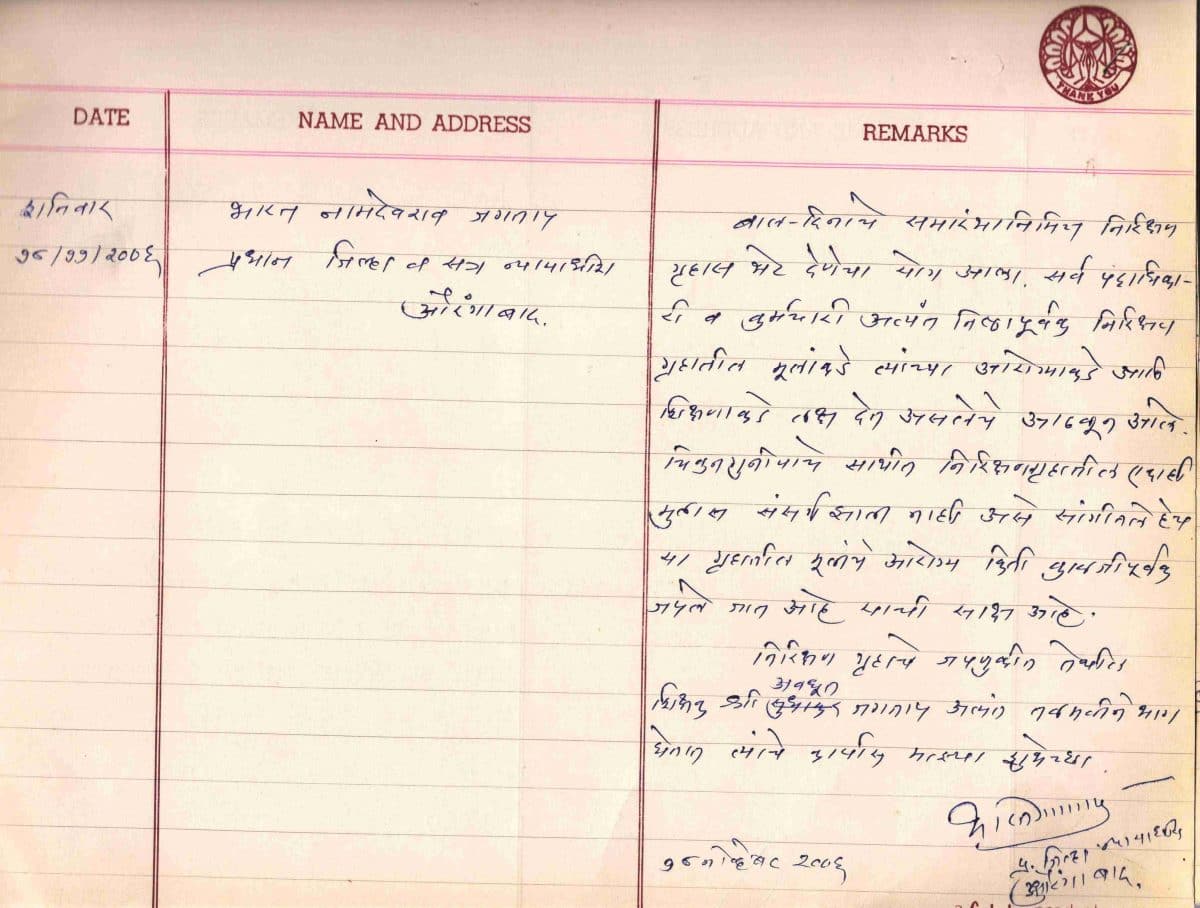 THANK YOU
DATE
NAME AND ADDRESS
REMARKS
शनिवार
१८/११/२००६
भारत नामदेवराव जगताप
प्रधान जिल्हा व सत्र न्यायाधीश
औरंगाबाद.
बाल-दिनाचे समारंभानिमित्त निरिक्षण
गृहास भेट देणेचा योग आला. सर्व पदाधिका-
री व कर्मचारी अत्यंत निष्ठापूर्वक निरिक्षण
गृहातील मूलांकडे त्यांच्या आरोग्याकडे आणि
शिक्षणाकडे लक्ष देत असलेचे आढळून आले.
चिकुनगुनीयाचे साथीत निरिक्षणगृहातील एकाही
मुलास संसर्ग झाला नाही असे सांगितले हेच
या गृहातील मूलांचे आरोग्य किती काळजीपूर्वक
जपले जात आहे याची साक्ष आहे.
निरिक्षण गृहाचे जपणुकीत तेथील
अवधूत
शिक्षक श्री सुधाकर जगताप अत्यंत तळमळीने भाग
घेतात त्यांचे कार्यास माझ्या शुभेच्छा.
१८ नोव्हेंबर २००६
प्र. जिल्हा न्यायाधीश
औरंगाबाद.